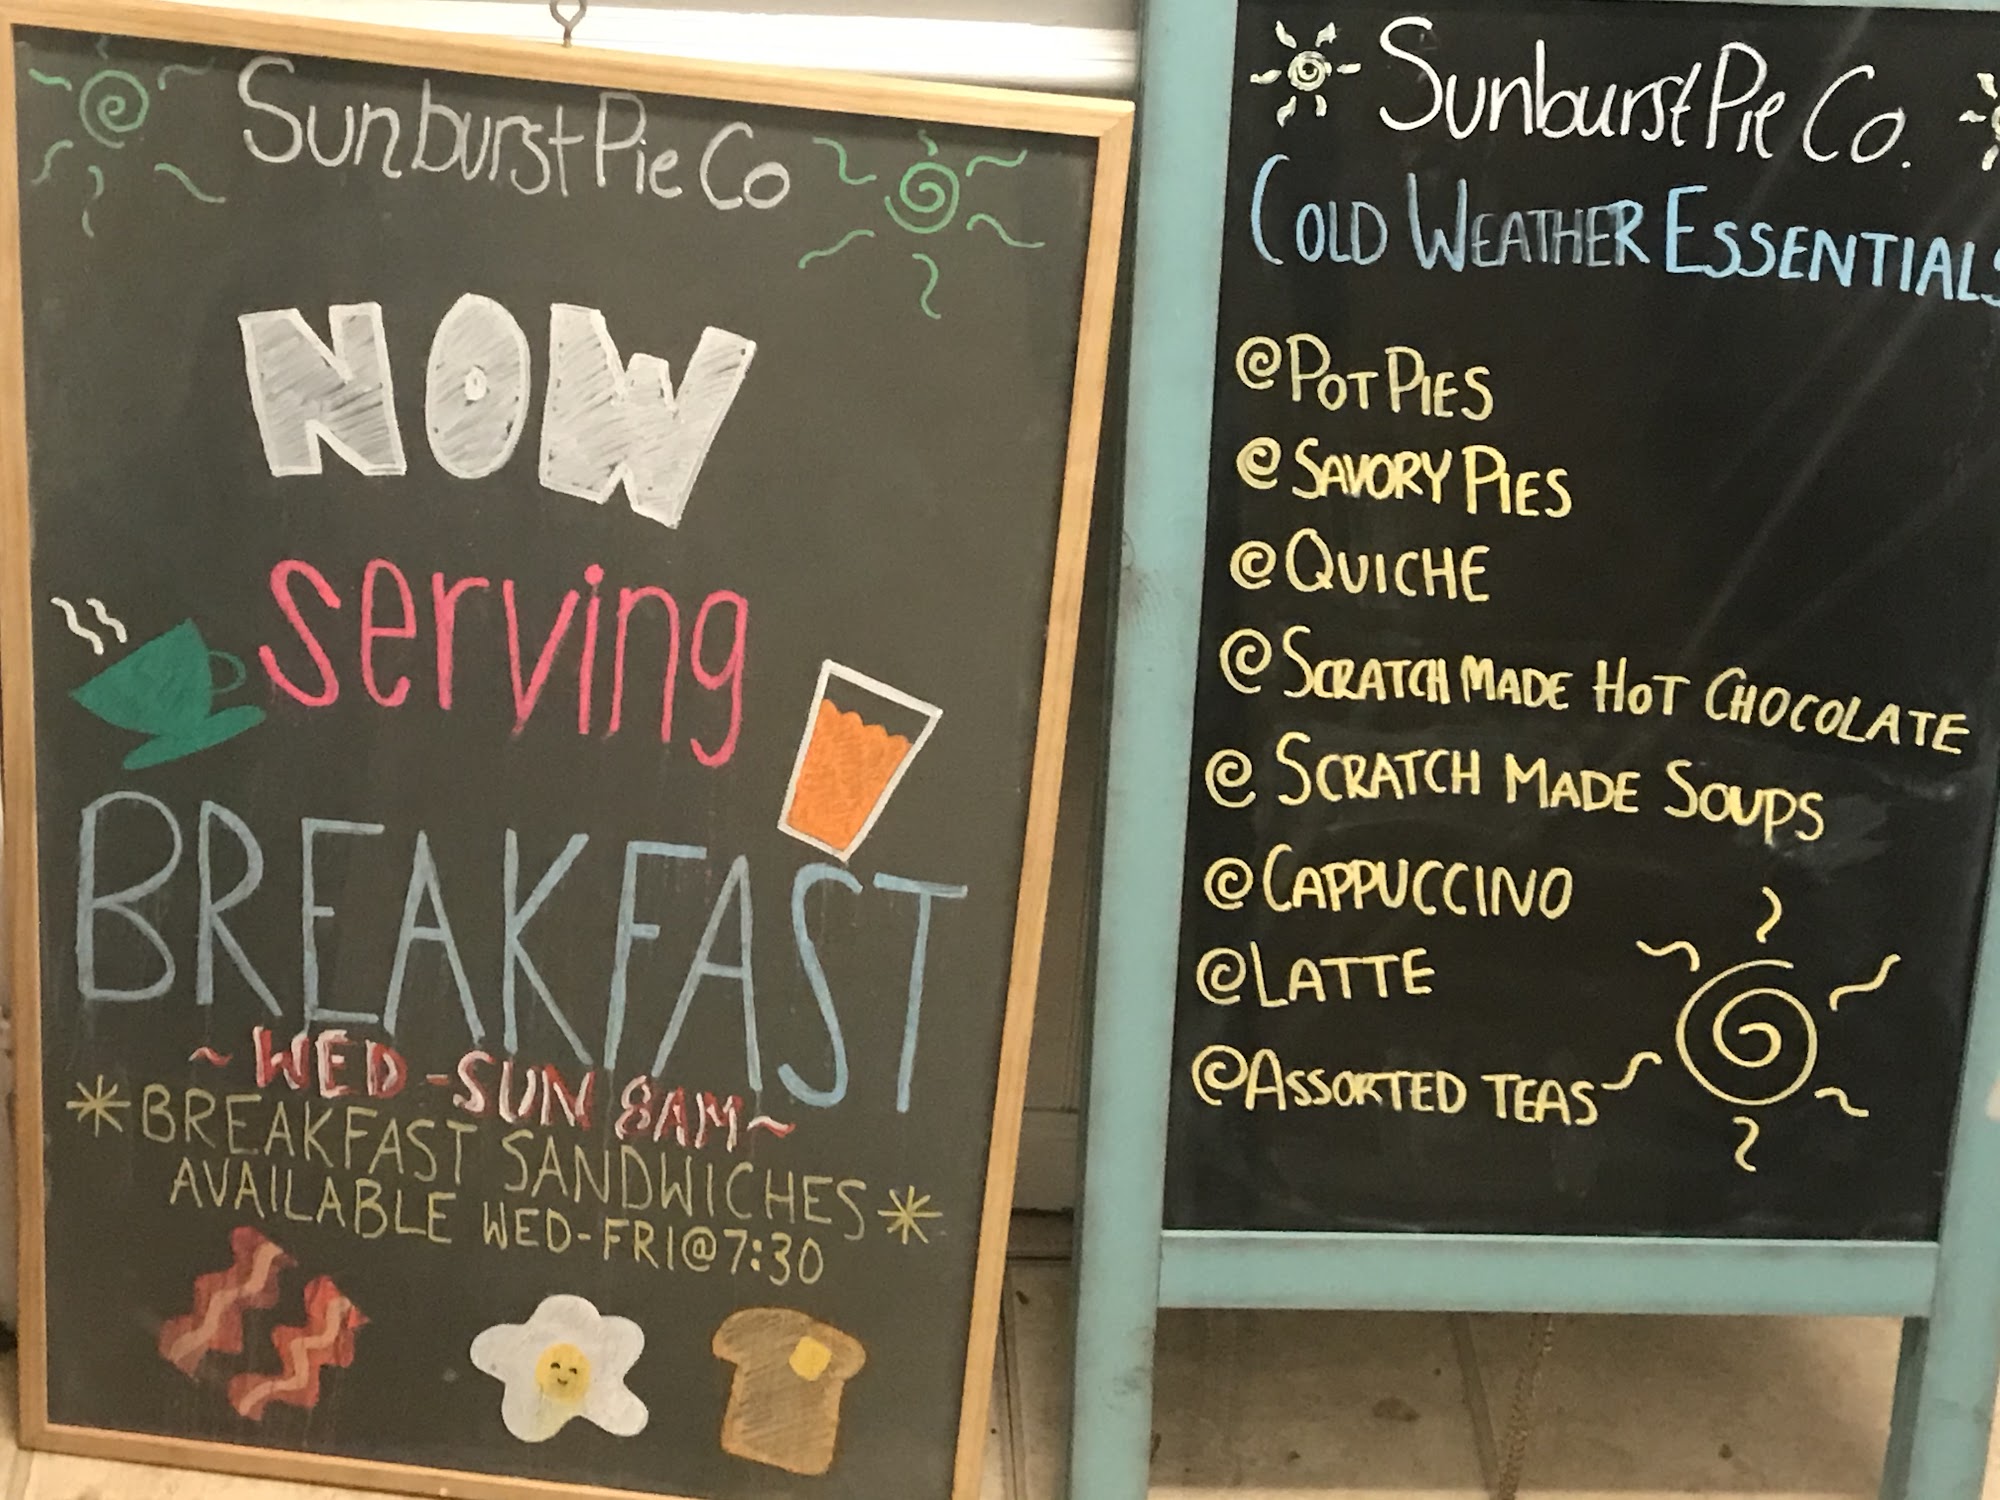 Sunburst Pie Co
NOW
serving
BREAKFAST
~WED-SUN 8AM~
*BREAKFAST SANDWICHES*
AVAILABLE WED-FRI@7:30
Sunburst Pie Co.
COLD WEATHER ESSENTIALS
@POT PIES
@SAVORY PIES
@QUICHE
@SCRATCH MADE HOT CHOCOLATE
@SCRATCH MADE SOUPS
@CAPPUCCINO
@LATTE
@ASSORTED TEAS